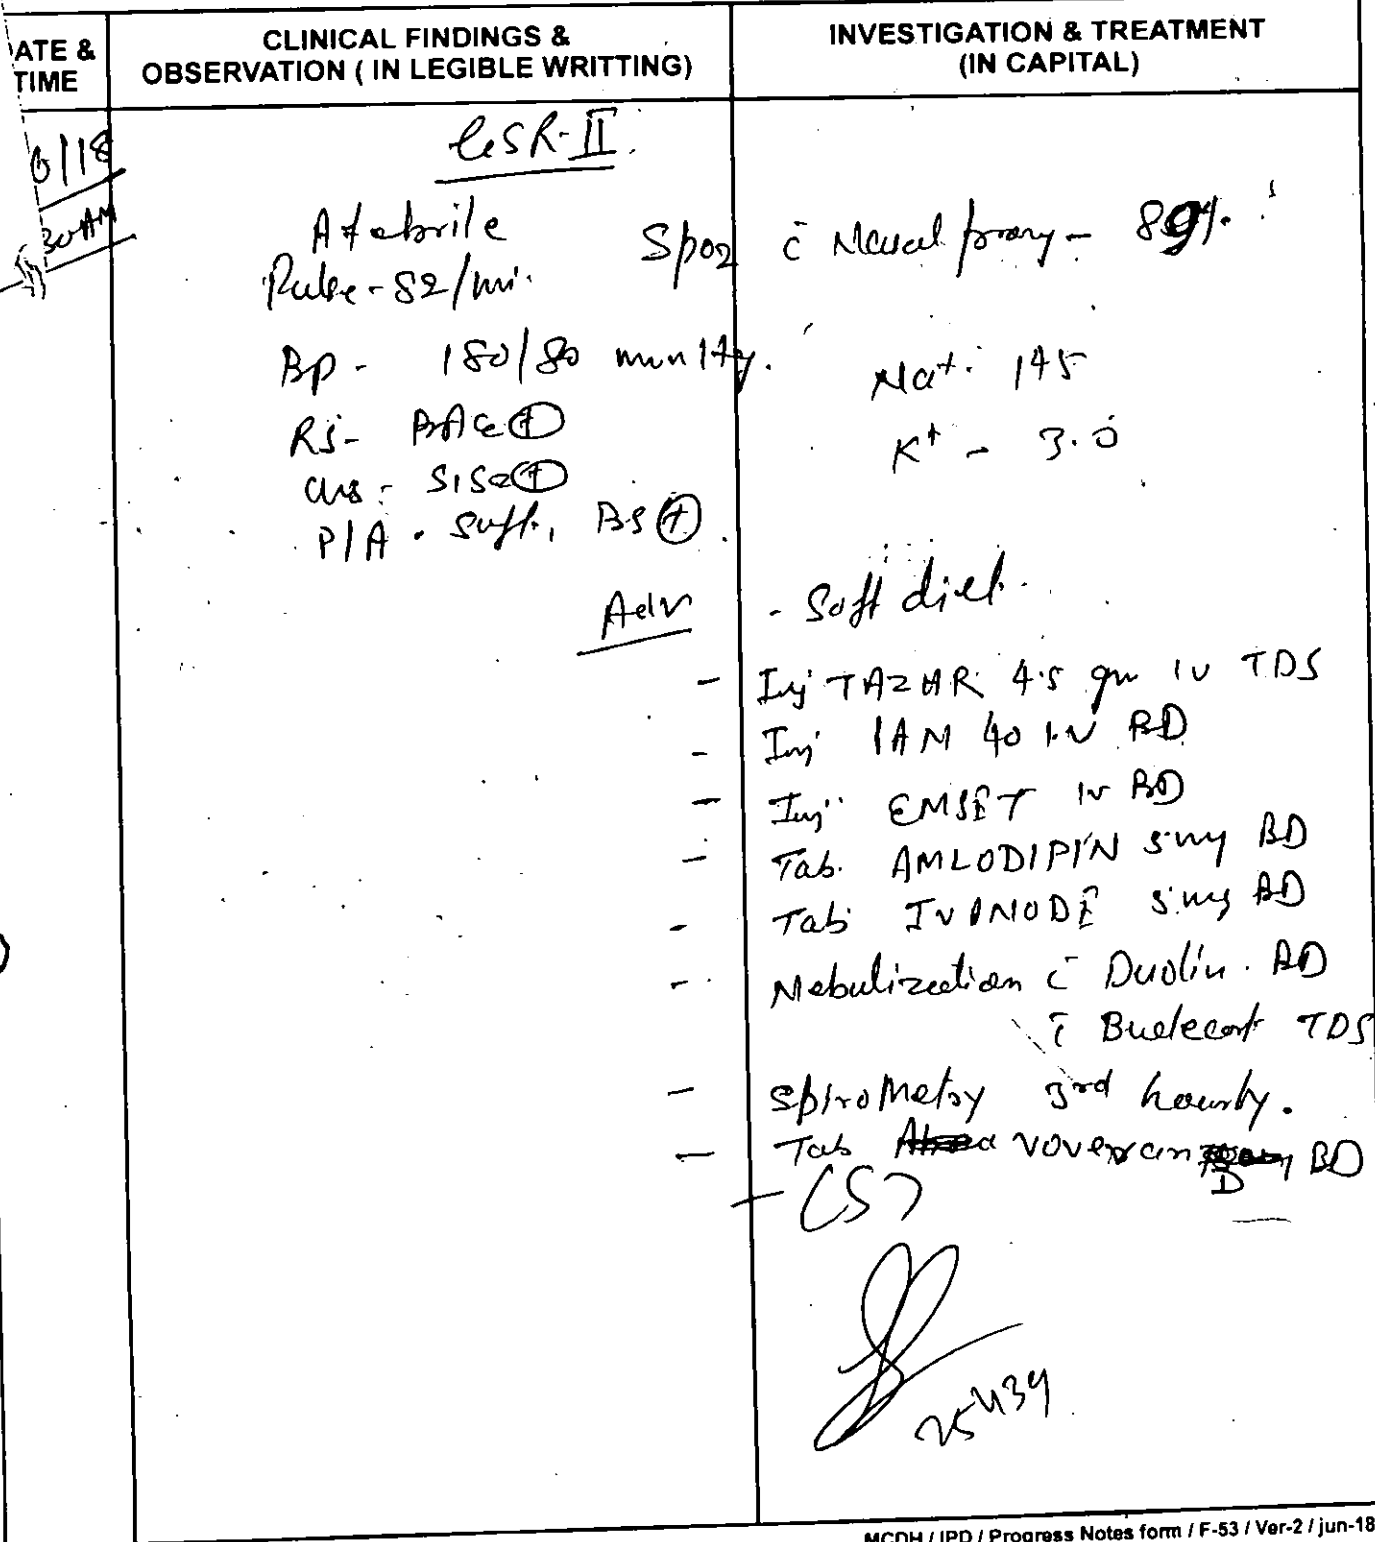 ATE &
TIME
CLINICAL FINDINGS &
OBSERVATION ( IN LEGIBLE WRITTING)
INVESTIGATION & TREATMENT
(IN CAPITAL)
6/18
30 AM
Afebrile
Spo2 c̄ Nasal prong - 89%.
Pulse - 82/mi.
BP - 180/80 mm Hg.
Na+ 145
RS - BAE ⊕
K+ - 3.0
CVS - S1S2 ⊕
P/A - Soft, BS ⊕
Adv
- Soft diet.
- Inj TAZAR 4.5 gm IV TDS
- Inj 40 I.V BD
- Inj EMSET IV BD
- Tab. AMLODIPIN 5 mg BD
- Tab 5 mg BD
- Nebulization c̄ Duolin. BD
c̄ Budecort TDS
- Spirometry 3rd hourly.
- Tab voveran D BD
25439
MCDH / IPD / Progress Notes form / F-53 / Ver-2 / jun-18